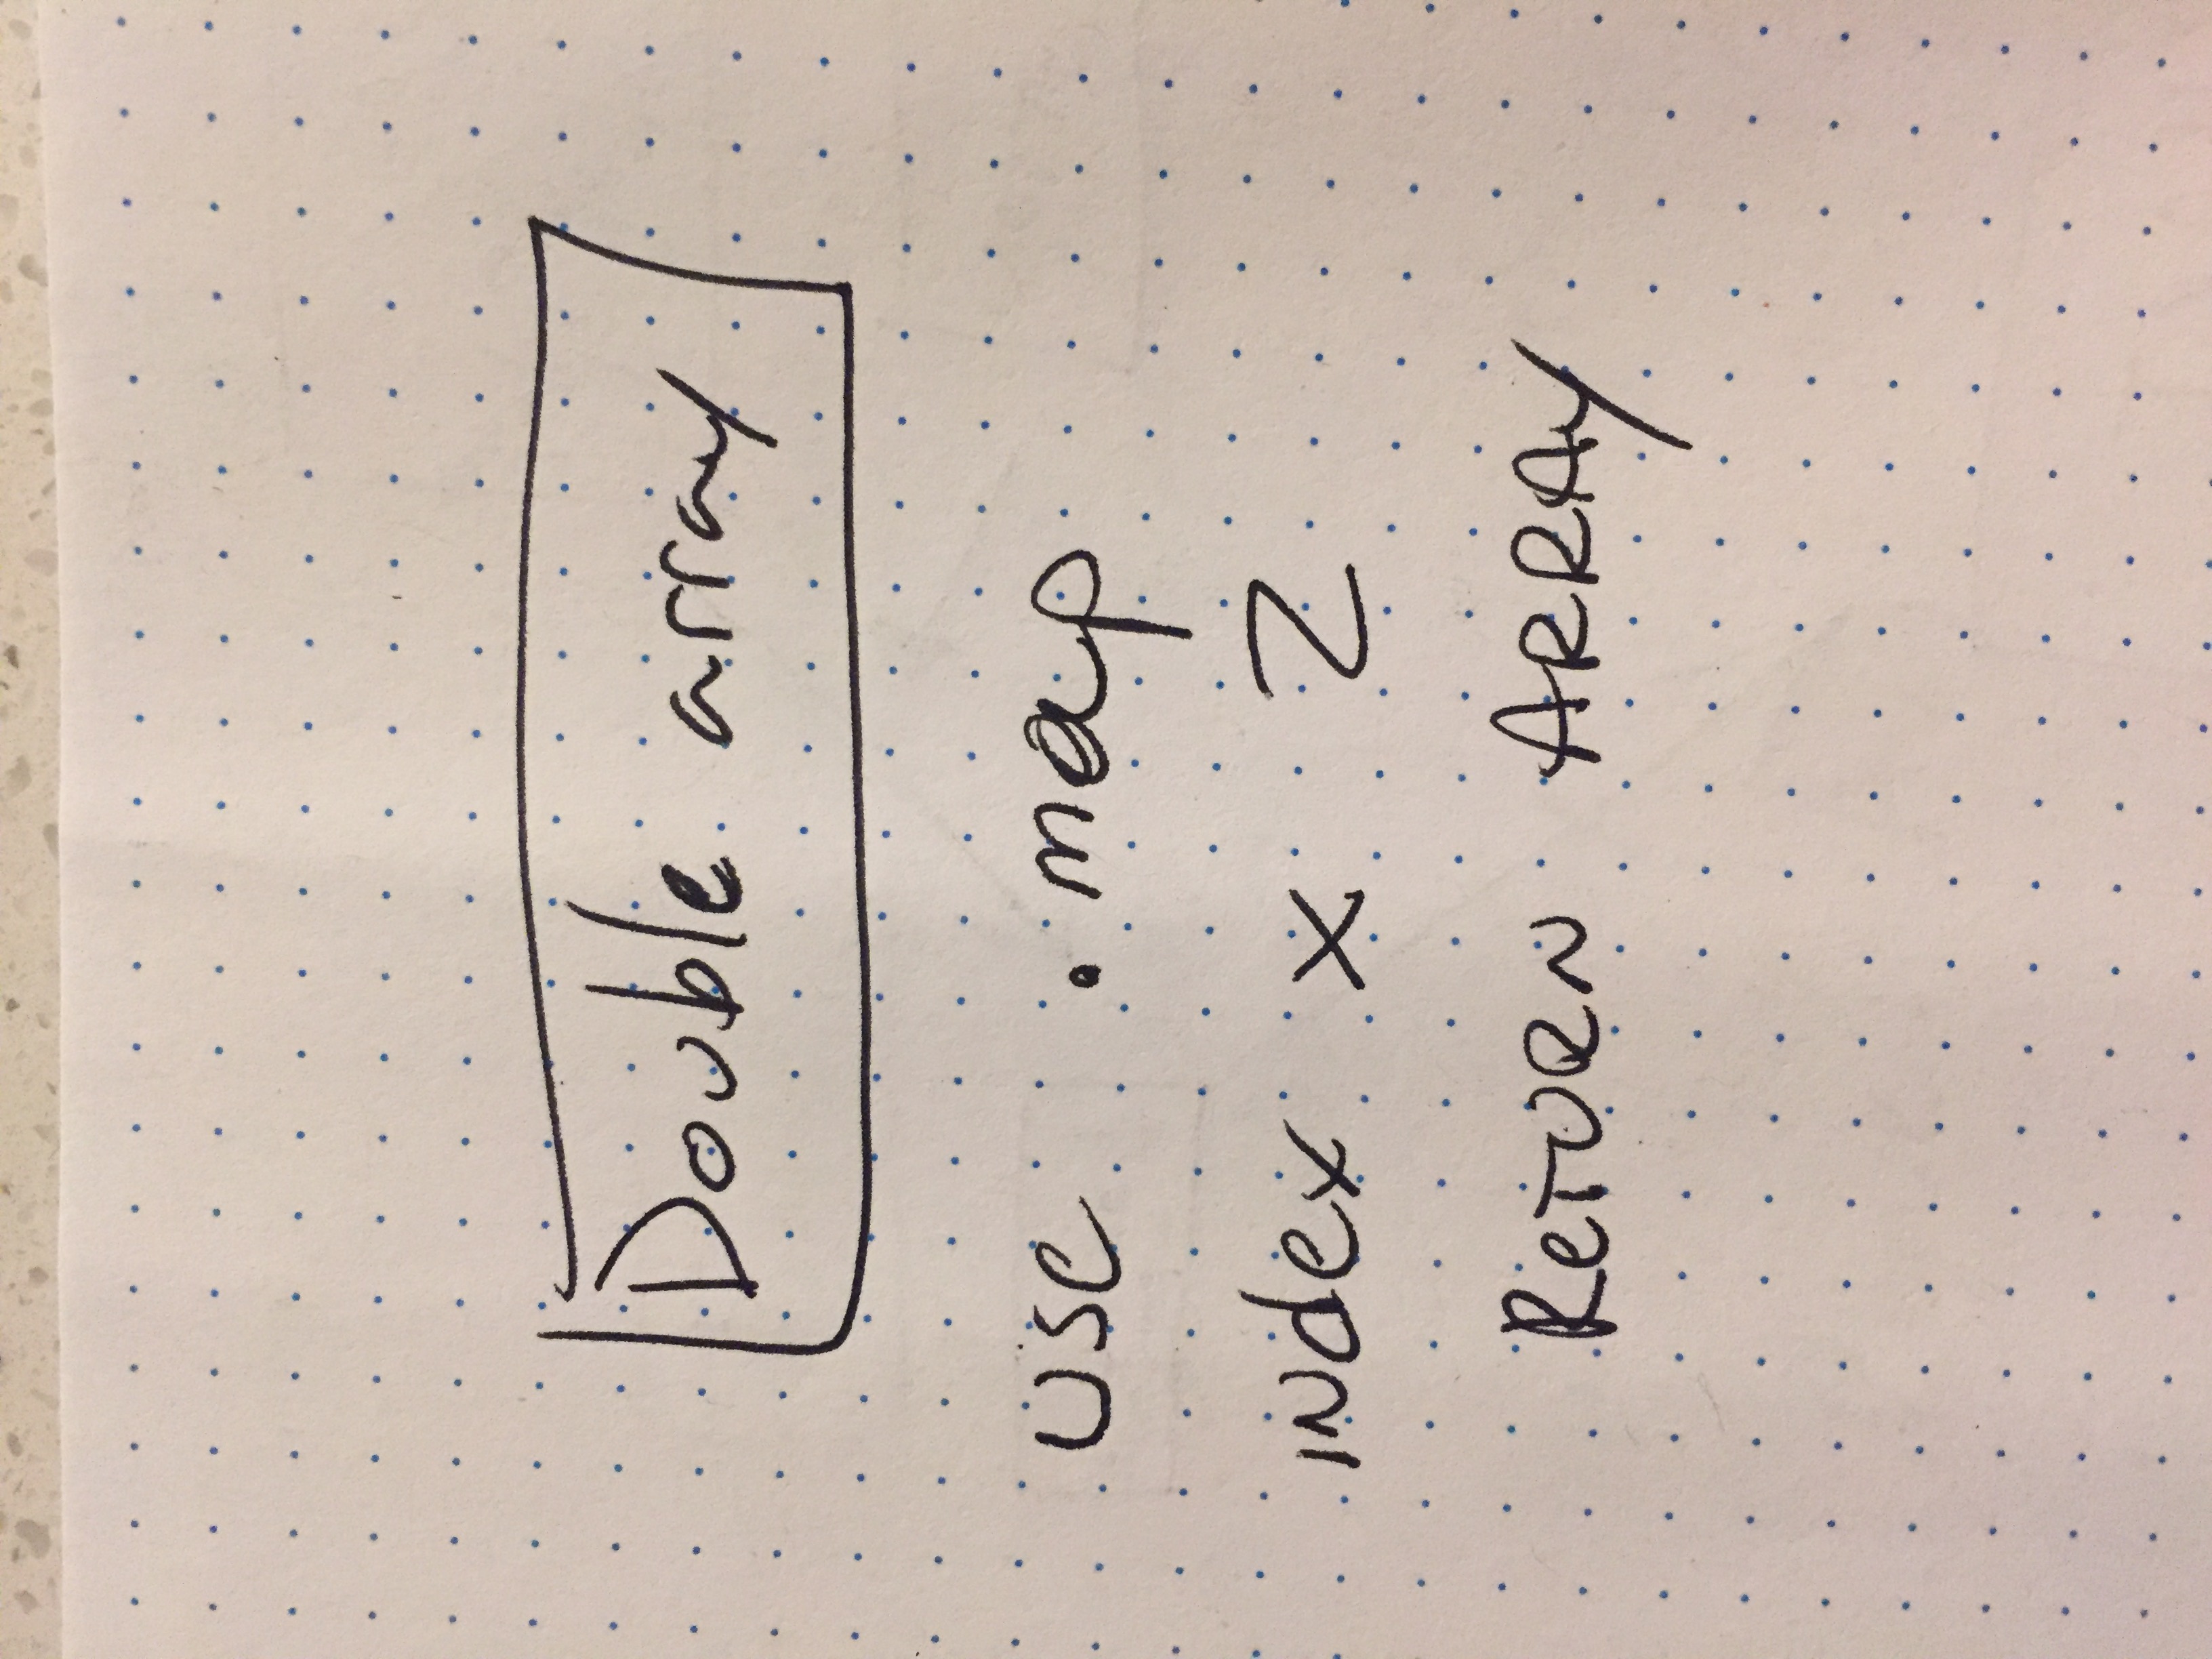 Double array
use .map
index x 2
Return ARRAY